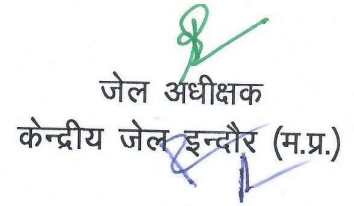 जेल अधीक्षक
केन्द्रीय जेल इन्दौर (म.प्र.)